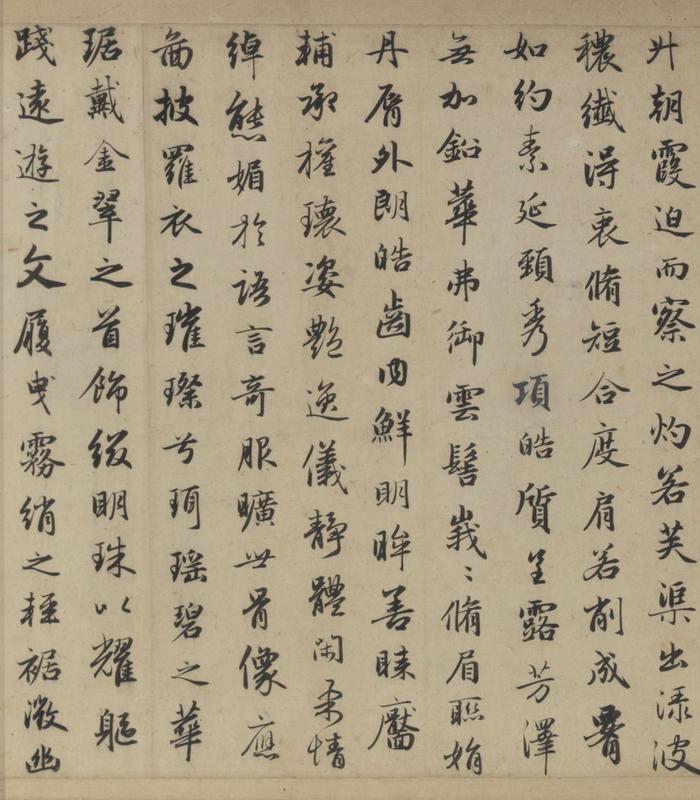 升朝霞迫而察之灼若芙渠出淥波
穠纖得衷脩短合度肩若削成署
如約素延頸秀項皓質呈露芳澤
無加鉛華弗御雲髻峩〻脩眉聮娟
丹脣外朗皓齒內鮮明眸善睞靨
輔承權瓌姿艶逸儀靜體閑柔情
綽態媚於語言奇服曠世骨像應
啚披羅衣之璀璨兮珥瑶碧之華
琚戴金翠之首飾綴明珠以耀軀
踐遠遊之文履曳霧綃之輕裾微幽